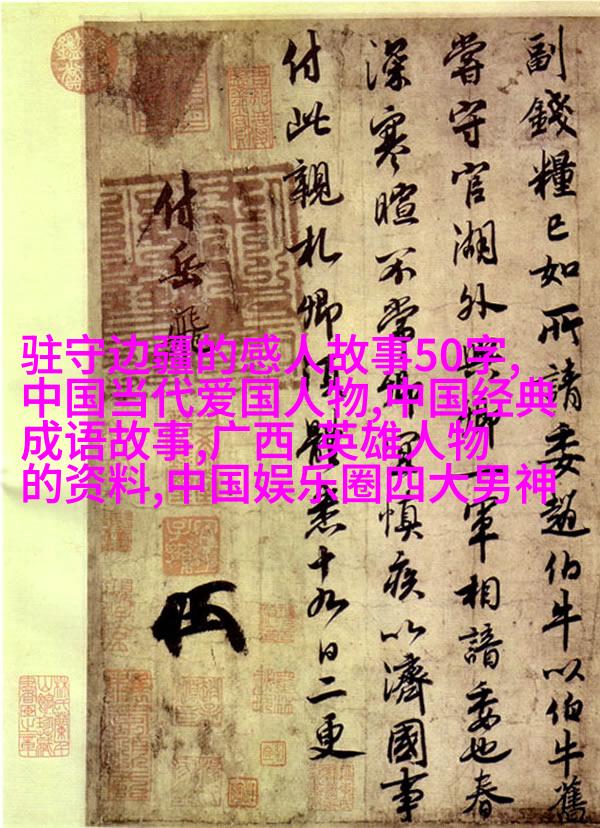 驻守边疆的感人故事50字,
中国当代爱国人物,中国经典
成语故事,广西 英雄人物
的资料,中国娱乐圈四大男神
副錢糧已如所請委趙伯牛以伯牛舊
嘗守官湖外與卿一軍相諳委也春
深寒暄不常卿宜慎疾以濟國事
付此親札卿須體悉十九日二更
付岳飛